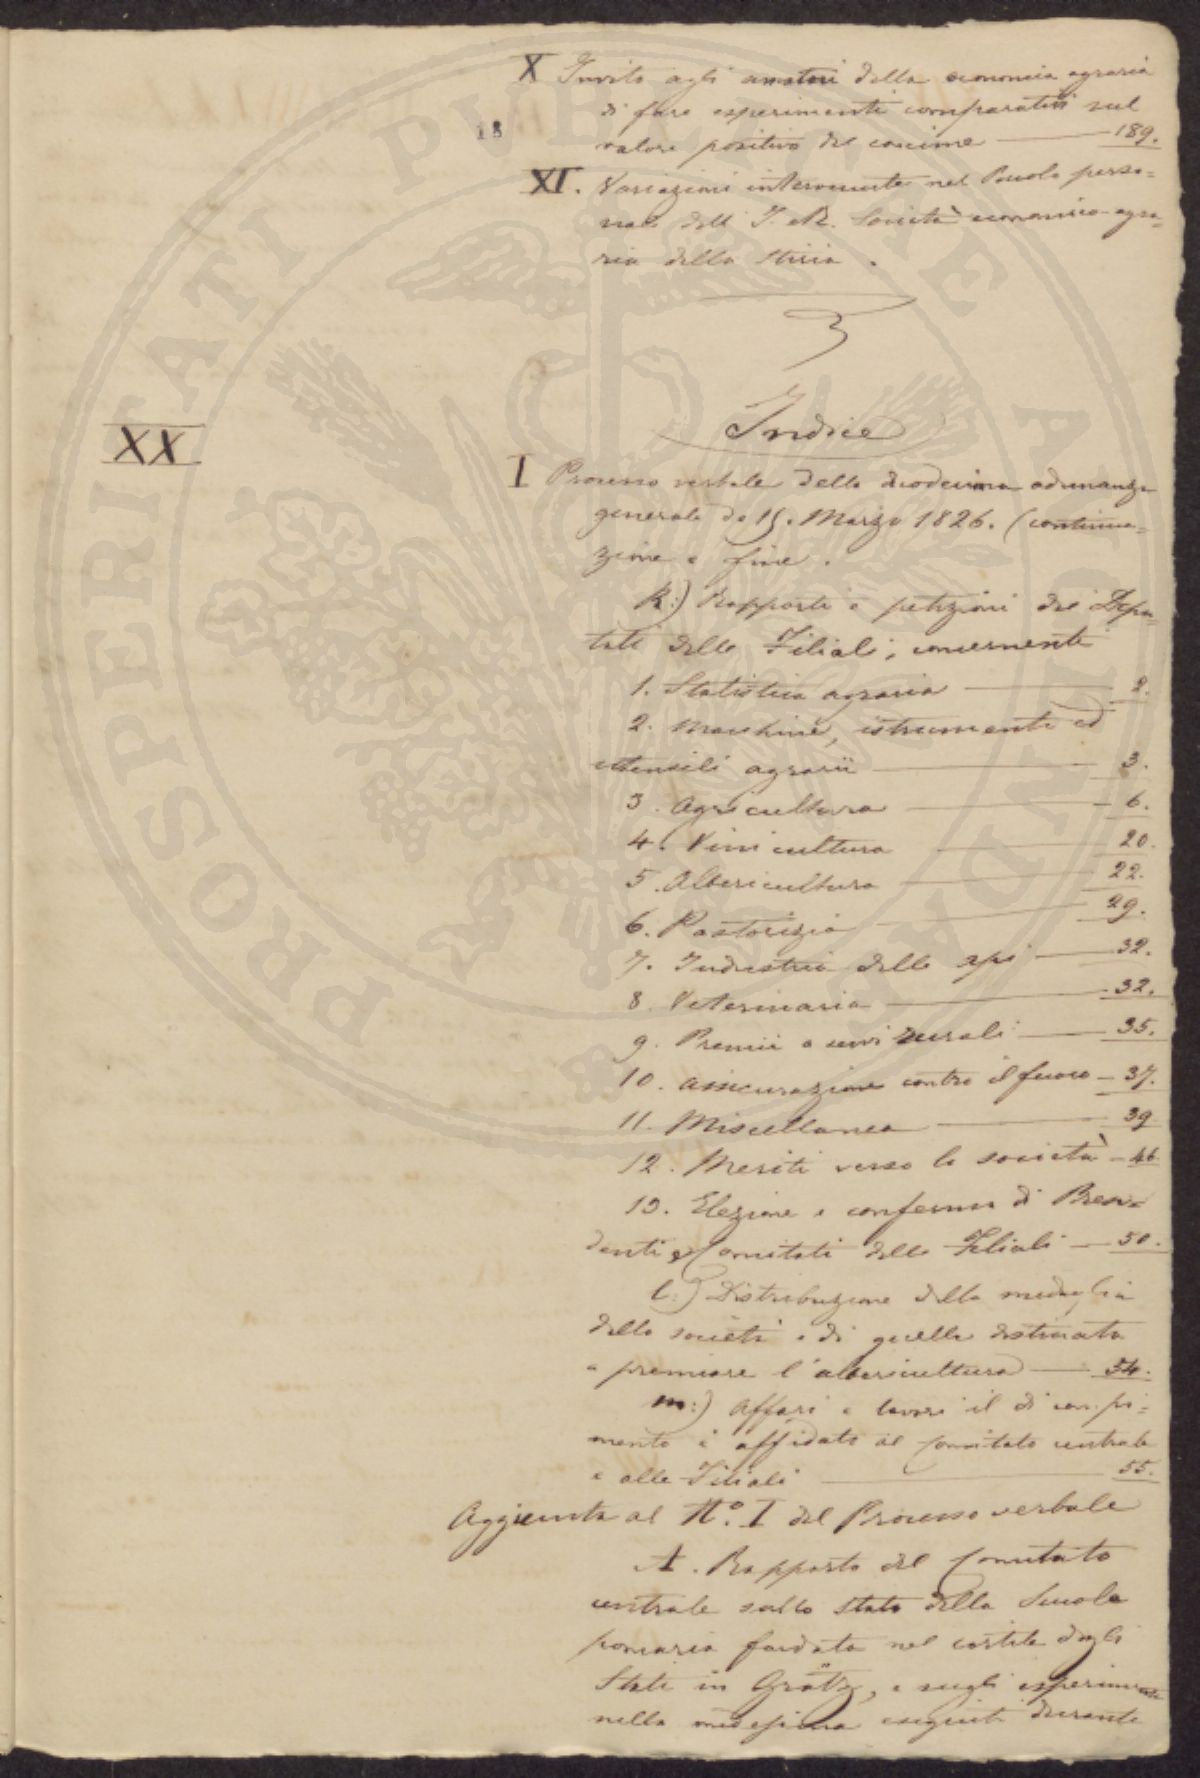 X Invito agli amatori della economia agraria
di fare esperimenti comparativi sul
18
valore positivo del concime — 189.
XI. Variazioni intervenute nel Ruolo perso=
nale dell' I. R. Società economico-agra=
ria della Stiria.
Indice
XX
I Processo verbale della duodecima adunanza
generale de 15. Marzo 1826. (continua=
zione e fine.
k:) Rapporti e petizioni dei Depu=
tati delle Filiali, concernenti
1. Statistica agraria — 2.
2. Macchine, istrumenti ed
utensili agrarii — 3.
3. Agricultura — 6.
4. Vinicultura — 20.
5. Albericultura — 22.
6. Pastorizia — 29.
7. Industria delle api — 32.
8. Veterinaria — 32.
9. Premii a servi rurali — 35.
10. Assicurazione contro il fuoco — 37.
11. Miscellanea — 39
12. Meriti verso la società — 46.
13. Elezione e conferma di Presi=
denti e Comitati delle Filiali — 50.
l:) Distribuzione della medaglia
della società e di quella destinata
a premiare l'albericultura — 54.
m:) Affari e lavori il di compi=
mento è affidato al Comitato centrale
e alle Filiali — 55.
Aggiunta al No. I del Processo verbale
A. Rapporto del Comitato
centrale sullo stato della Scuola
pomaria fondata nel cortile degli
Stati in Grätz, e sugli esperimenti
nella medesima eseguiti durante
PROSPERITATI PUBLICAE AUGENDAE